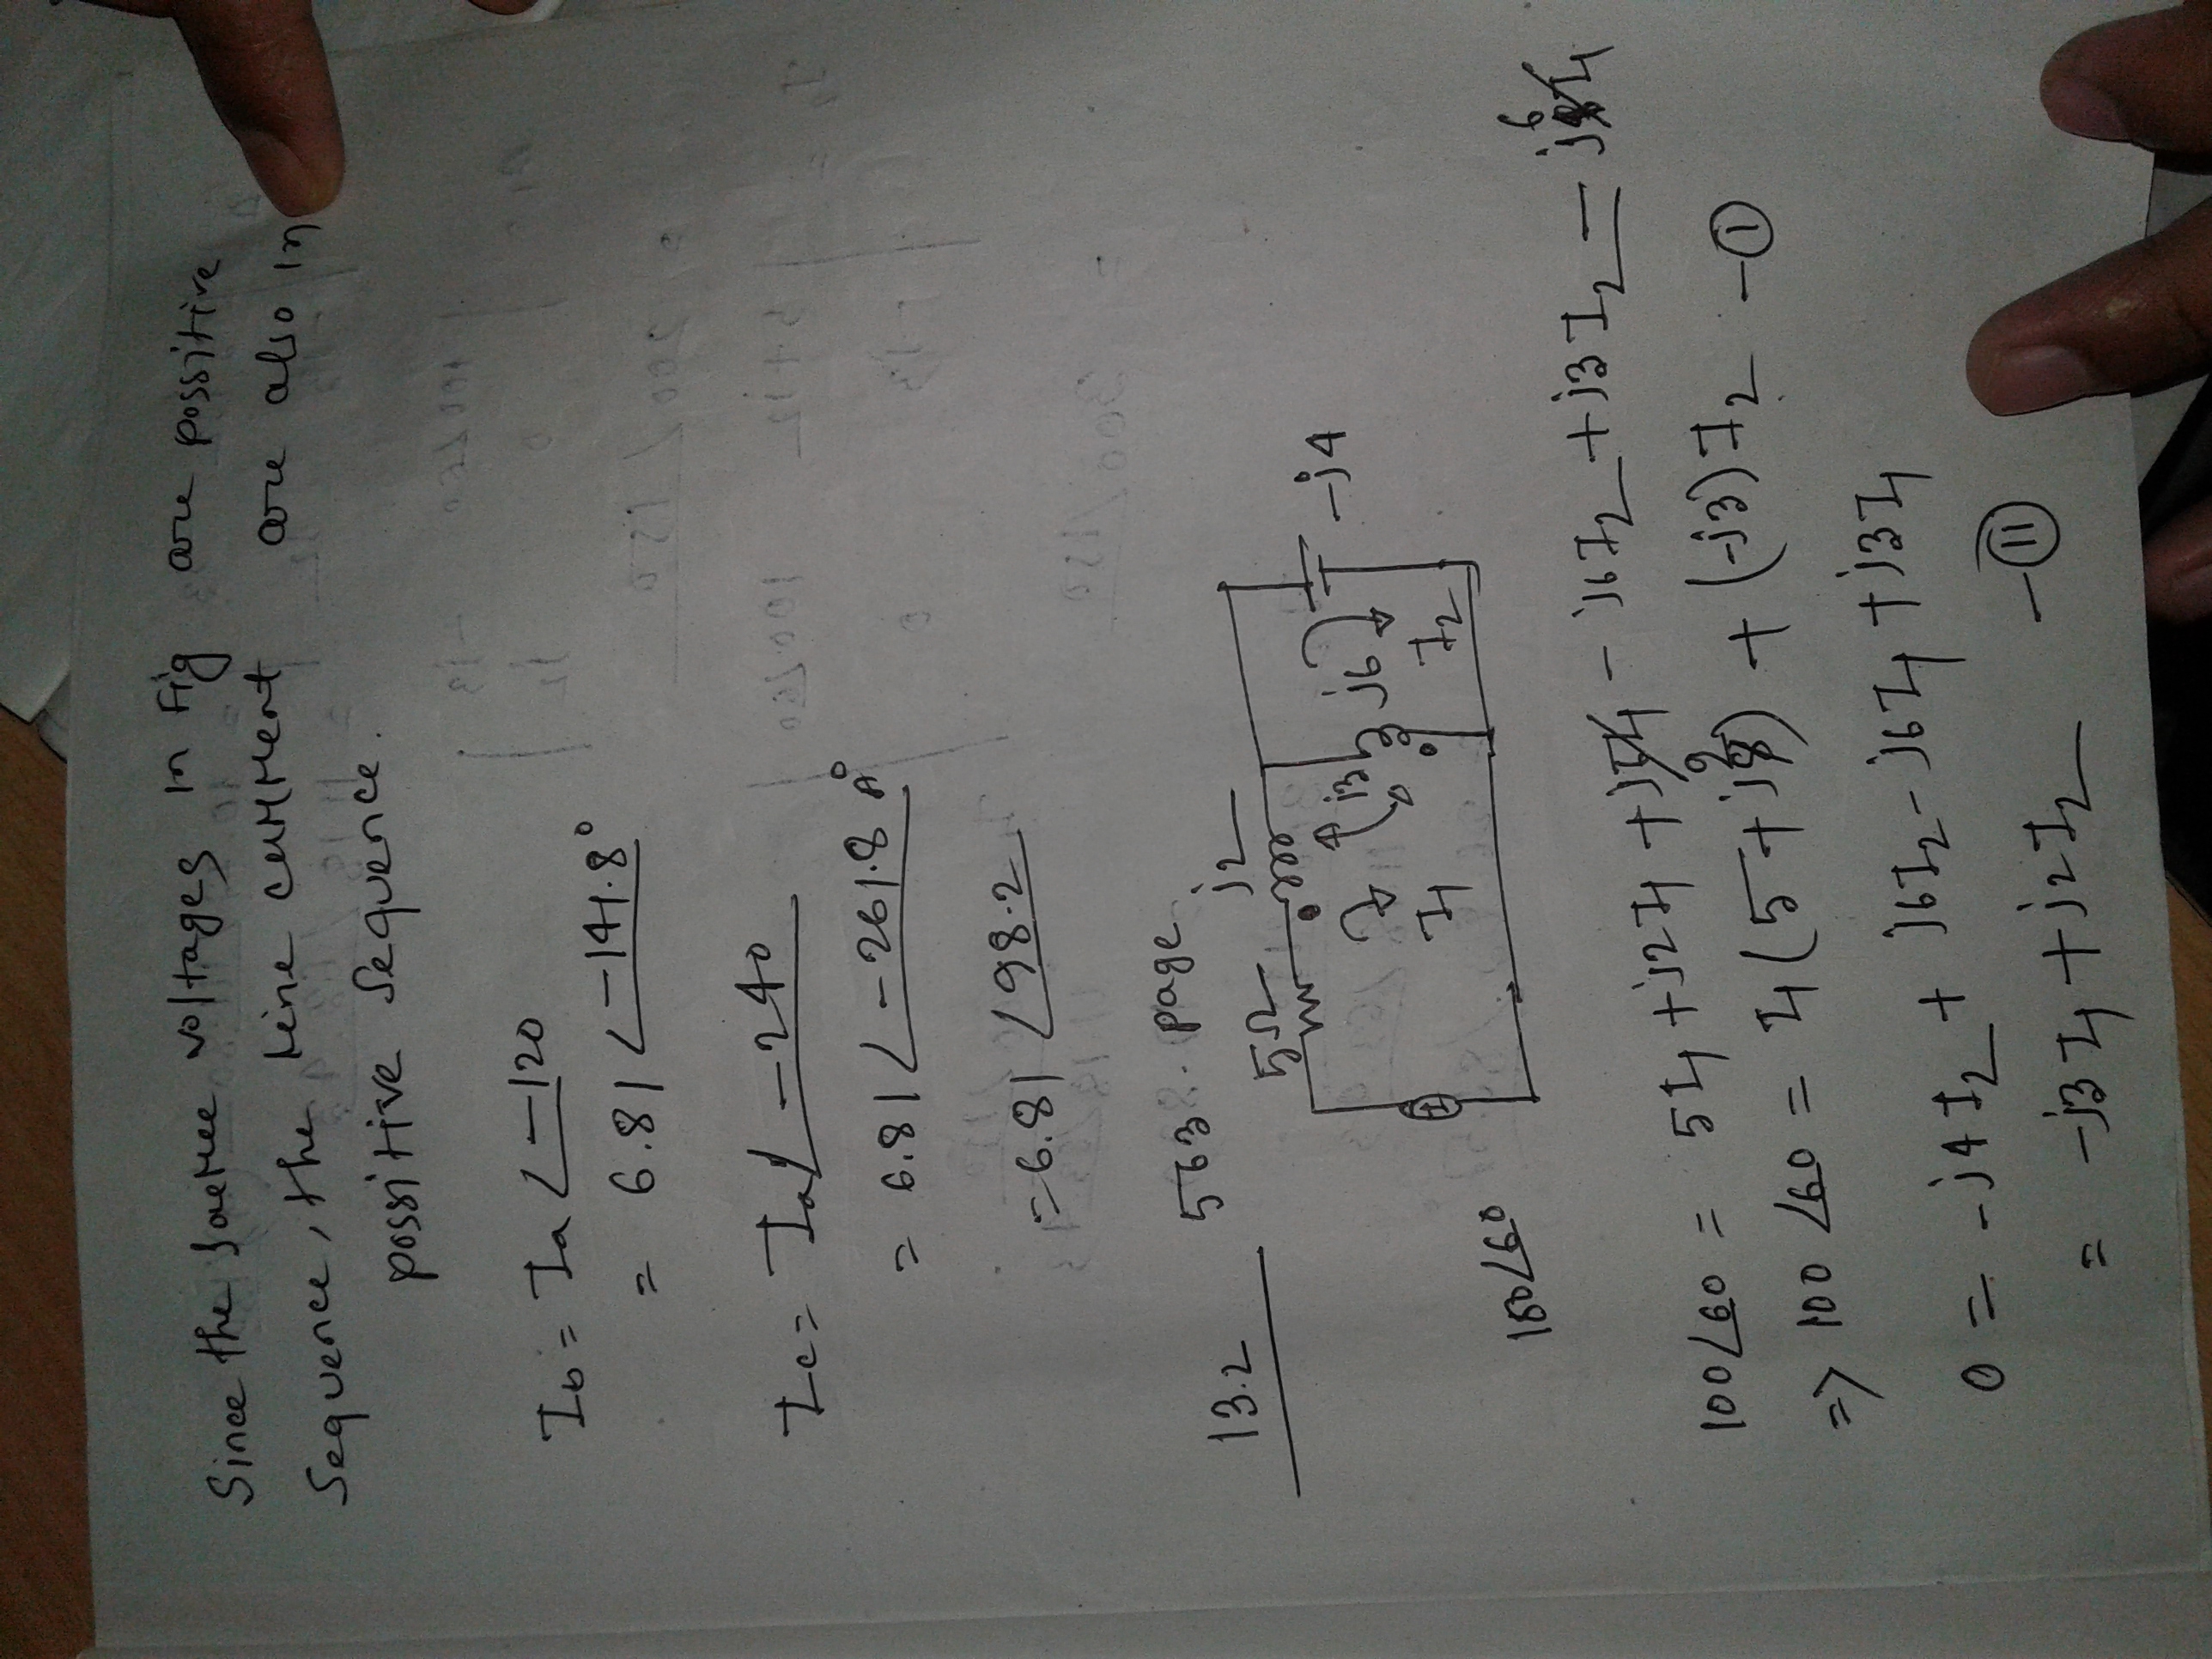 Since the source voltages in Fig are possitive
Sequence, the line current are also in
possitive Sequence.
Ib = Ia ∠-120
= 6.81 ∠-141.8°
Ic = Ia ∠-240
= 6.81 ∠-261.8 A°
= 6.81 ∠98.2
13.2 563. page
5Ω j2
j3 j6 -j4
I1 I2
100∠60
100∠60 = 5I1 + j2I1 + - j6I2 + j3I2 -
=> 100 ∠60 = I1(5 + j2) + (-j3)I2 - (I)
0 = -j4I2 + j6I2 - j6I1 + j3I1
= -j3I1 + j2I2 - (II)